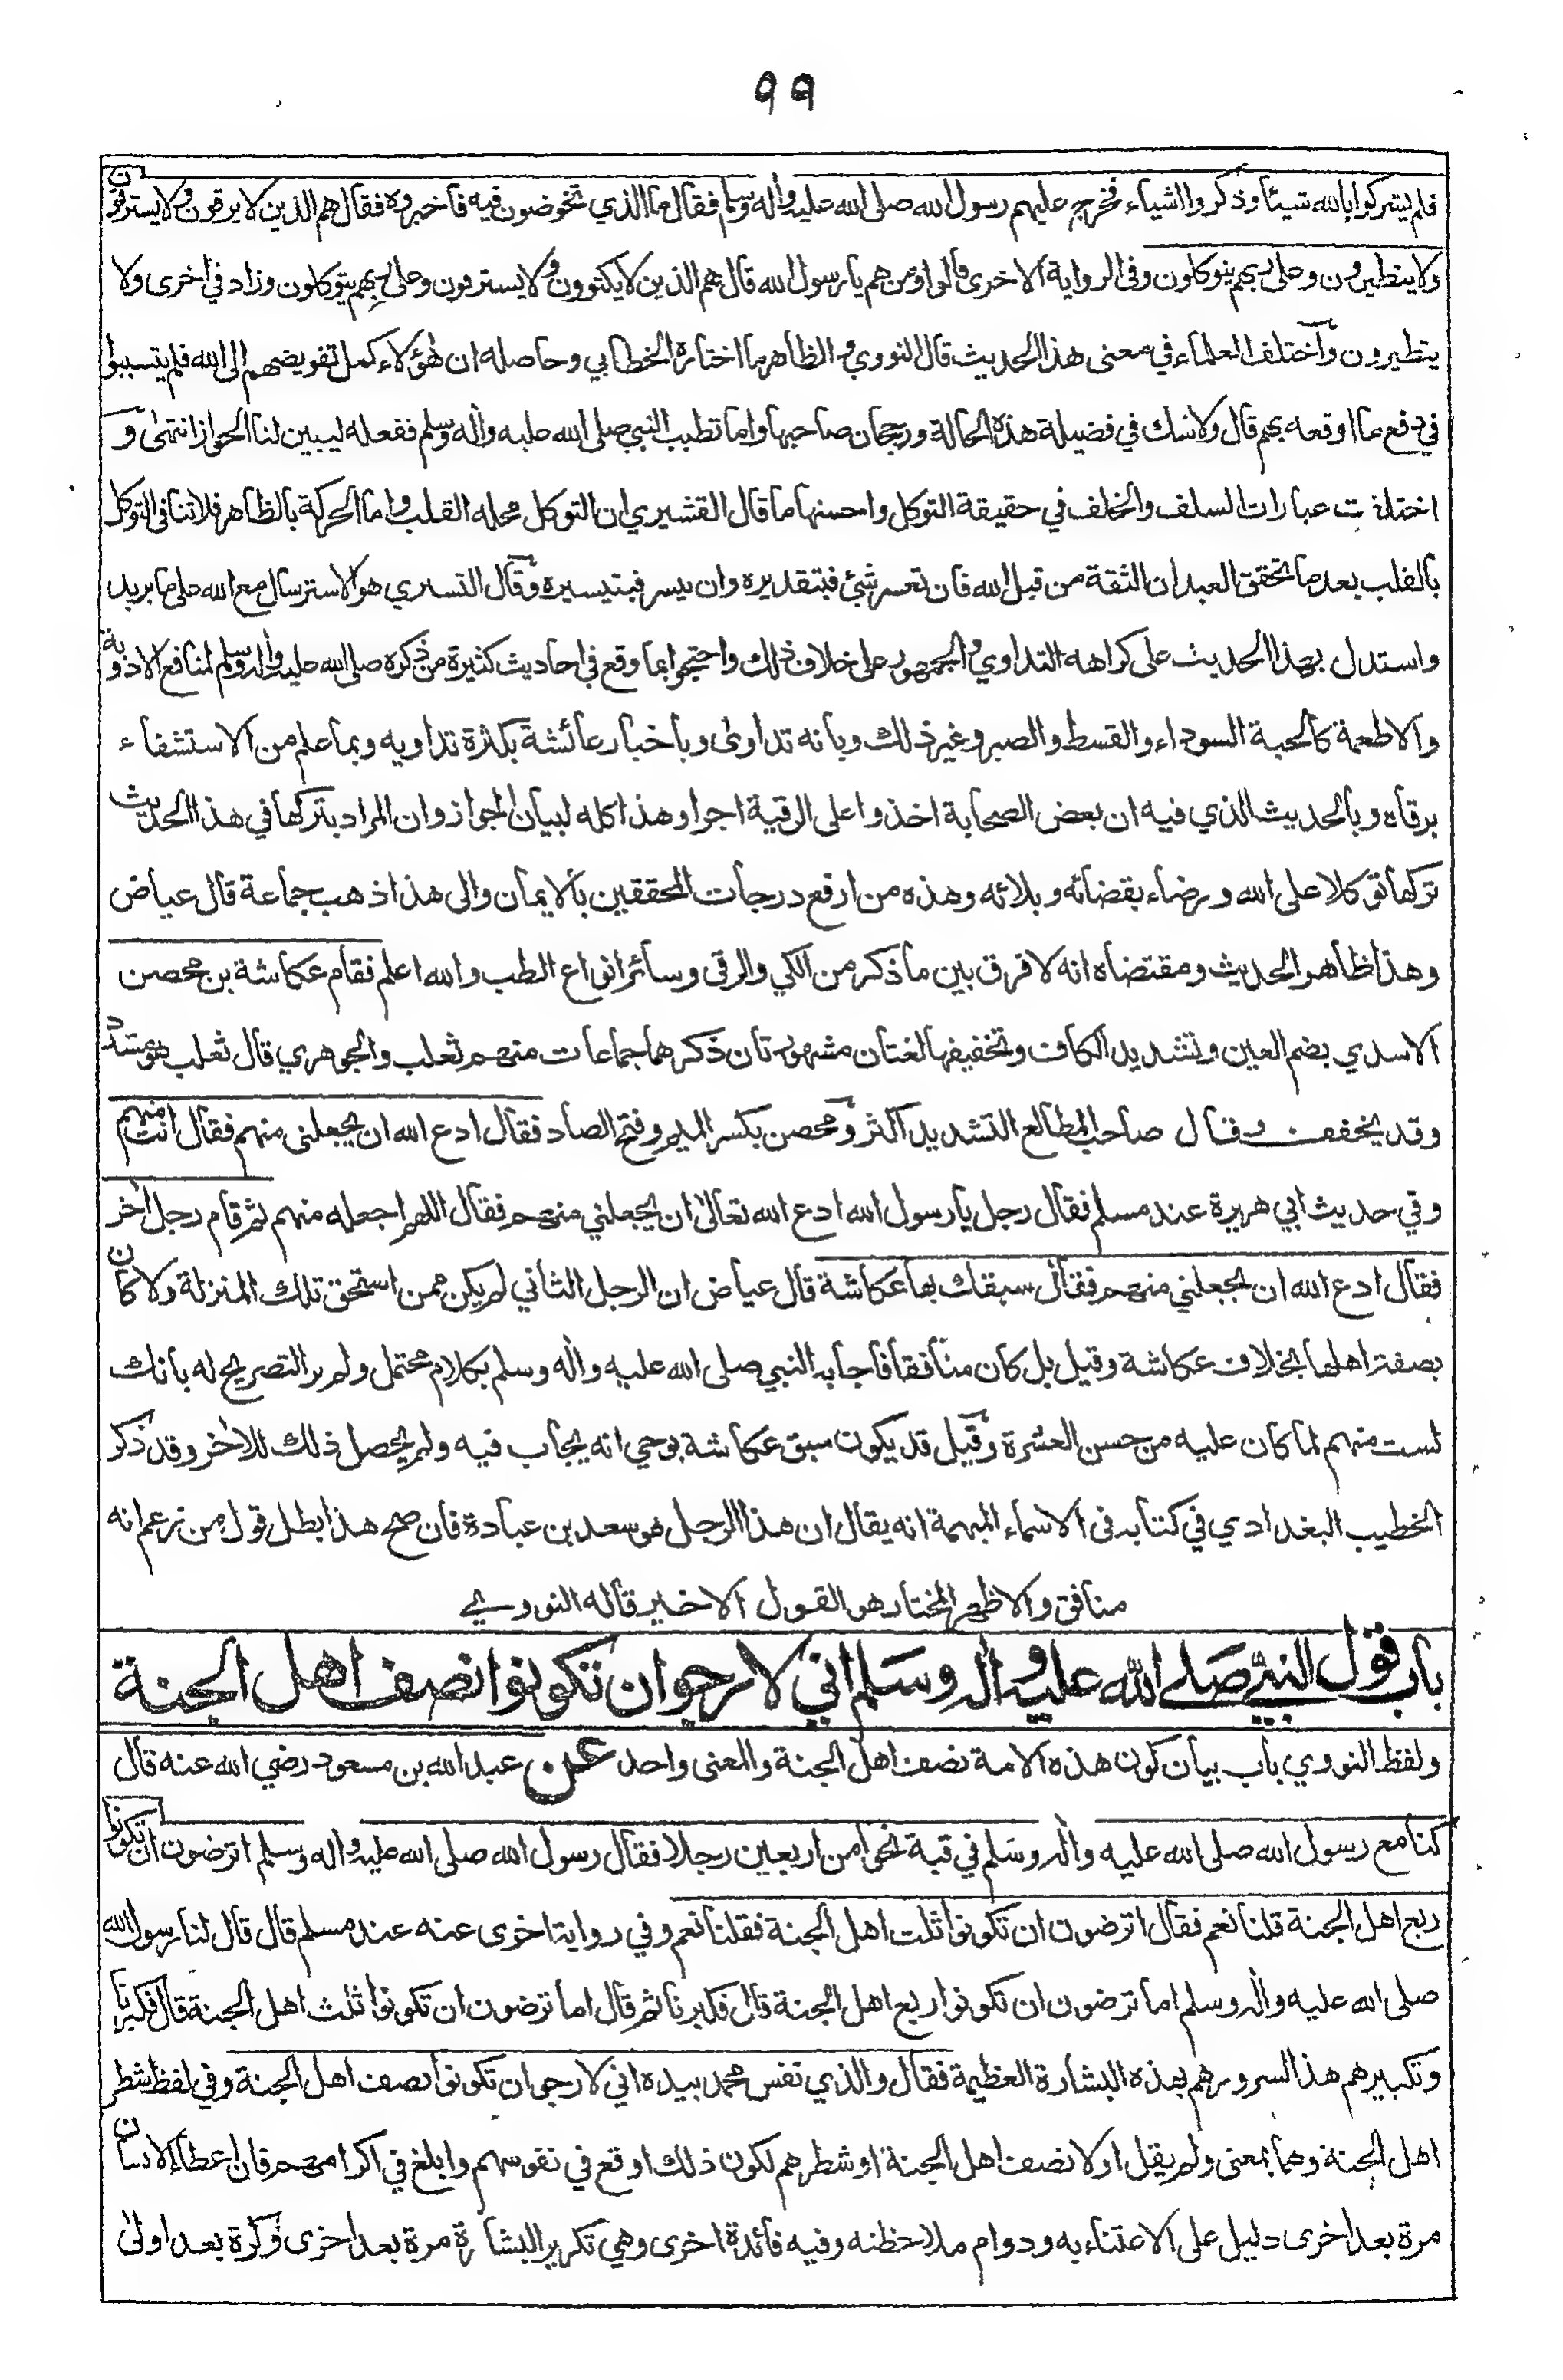 ٩٩
فلم يشركوا بالله شيئا وذكروا اشياء فخرج عليهم رسول الله صلى الله عليه وأله وسلم فقال ما الذي تخوضون فيه فاخبروه فقال هم الذين لا يرقون ولا يسترقون
ولا يتطيرون وعلى ربهم يتوكلون وفي الرواية الاخرى قالوا ومن هم يا رسول الله قال هم الذين لا يكتوون ولا يسترقون وعلى ربهم يتوكلون وزاد في اخرى ولا
يتطيرون وأختلف العلماء في معنى هذا الحديث قال النووي والظاهر ما اختاره الخطابي وحاصله ان هؤلاء كمل تفويضهم الى الله فلم يتسببوا
في دفع ما اوقعه بهم قال ولا شك في فضيلة هذه الحالة ورجحان صاحبها واما تطبب النبي صلى الله عليه وأله وسلم ففعله ليبين لنا الجواز انتهى و
اختلفت عبارات السلف والخلف في حقيقة التوكل واحسنها ما قال القشيري ان التوكل محله القلب واما الحركة بالظاهر فلا تنافي التوكل
بالقلب بعد ما تحقق العبد ان الثقة من قبل الله فان تعسر شئ فبتقديره وان يتيسر فبتيسيره وقال التستري هو الاسترسال مع الله على ما يريد
واستدل بهذا الحديث على كراهة التداوي والجمهور على خلاف ذلك واحتجوا بما وقع في احاديث كثيرة من ذكره صلى الله عليه وأله وسلم لمنافع الادوية
والاطعمة كالحبة السوداء والقسط والصبر وغير ذلك وبانه تداوى وباخبار عائشة بكثرة تداويه وبما علم من الاستشفاء
برقاه وبالحديث الذي فيه ان بعض الصحابة اخذوا على الرقية اجرا وهذا كله لبيان الجواز وان المراد بتركها في هذا الحديث
تركها توكلا على الله ورضاء بقضائه وبلائه وهذه من ارفع درجات المحققين بالايمان والى هذا ذهب جماعة قال عياض
وهذا ظاهر الحديث ومقتضاه انه لا فرق بين ما ذكر من الكي والرقى وسائر انواع الطب والله اعلم فقام عكاشة بن محصن
الاسدي بضم العين وتشديد الكاف وتخفيفها لغتان مشهورتان ذكرهما جماعات منهم ثعلب والجوهري قال ثعلب هو مشدد
وقد يخفف وقال صاحب المطالع التشديد اكثر ومحصن بكسر الميم وفتح الصاد فقال ادع الله ان يجعلني منهم فقال انت منهم
وفي حديث ابي هريرة عند مسلم فقال رجل يا رسول الله ادع الله تعالى ان يجعلني منهم فقال اللهم اجعله منهم ثم قام رجل أخر
فقال ادع الله ان يجعلني منهم فقال سبقك بها عكاشة قال عياض ان الرجل الثاني لم يكن ممن استحق تلك المنزلة ولا كان
بصفة اهلها بخلاف عكاشة وقيل بل كان منافقا فاجابه النبي صلى الله عليه وأله وسلم بكلام محتمل ولم ير التصريح له بانك
لست منهم لما كان عليه من حسن العشرة وقيل قد يكون سبق عكاشة بوحي انه يجاب فيه ولم يحصل ذلك للأخر وقد ذكر
الخطيب البغدادي في كتابه في الاسماء المبهمة انه يقال ان هذا الرجل هو سعد بن عبادة فان صح هذا بطل قول من زعم انه
منافق والاظهر المختار هو القول الاخير قاله النووي
باب قول النبي صلى الله عليه وأله وسلم اني لارجو ان تكونوا نصف اهل الجنة
ولفظ النووي باب بيان كون هذه الامة نصف اهل الجنة والمعنى واحد عن عبد الله بن مسعود رضي الله عنه قال
كنا مع رسول الله صلى الله عليه وأله وسلم في قبة نحوا من اربعين رجلا فقال رسول الله صلى الله عليه وأله وسلم اترضون ان تكونوا
ربع اهل الجنة قلنا نعم فقال اترضون ان تكونوا ثلث اهل الجنة فقلنا نعم وفي رواية اخرى عنه عند مسلم قال قال لنا رسول الله
صلى الله عليه وأله وسلم اما ترضون ان تكونوا ربع اهل الجنة قال فكبرنا ثم قال اما ترضون ان تكونوا ثلث اهل الجنة قال فكبرنا
وتكبيرهم هذا لسرورهم بهذه البشارة العظيمة فقال والذي نفس محمد بيده اني لارجو ان تكونوا نصف اهل الجنة وفي لفظ شطر
اهل الجنة وهما بمعنى ولم يقل اولا نصف اهل الجنة او شطرهم لكون ذلك اوقع في نفوسهم وابلغ في اكرامهم فان اعطاء الانسان
مرة بعد اخرى دليل على الاعتناء به ودوام ملاحظته وفيه فائدة اخرى وهي تكرير البشارة مرة بعد اخرى وكرة بعد اولى